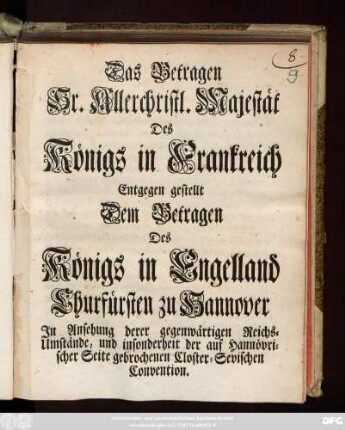 8
9
Das Betragen
Sr. Allerchristl. Majestät
Des
Königs in Frankreich
Entgegen gestellt
Dem Betragen
Des
Königs in Engelland
Churfürsten zu Hannover
In Ansehung derer gegenwärtigen Reichs-
Umstände, und insonderheit der auf Hannövri-
scher Seite gebrochenen Closter-Sevischen
Convention.
DFG